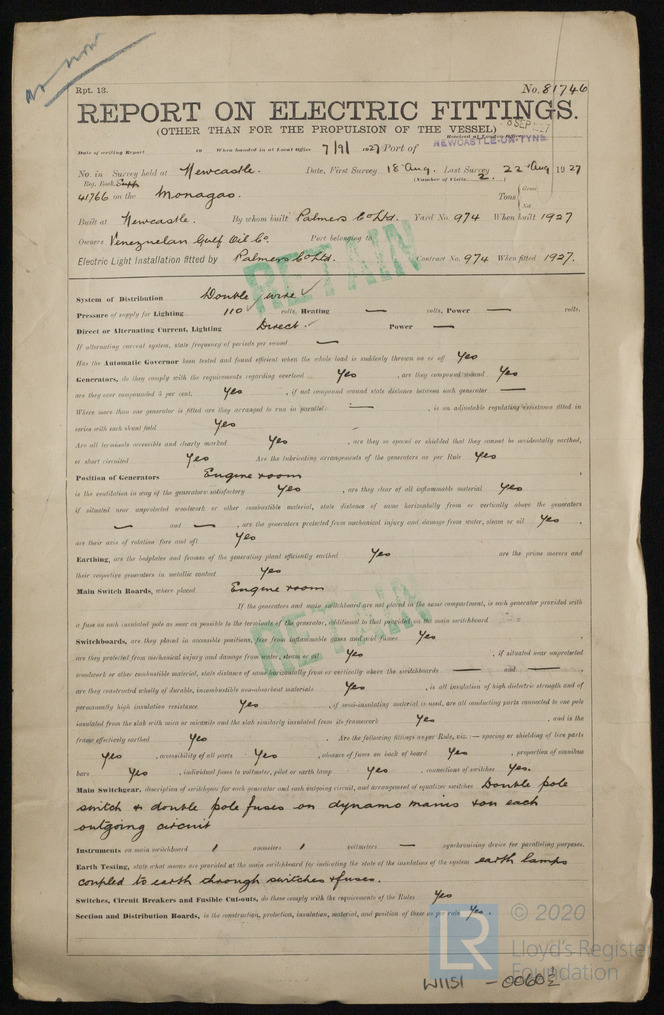 as now
Rpt. 13.
No. 81746
REPORT ON ELECTRIC FITTINGS.
(OTHER THAN FOR THE PROPULSION OF THE VESSEL)
8 SEP 1927
Received at London Office
NEWCASTLE-ON-TYNE
Date of writing Report 19 When handed in at Local Office 7/9/ 1927 Port of
No. in Survey held at Newcastle. Date, First Survey 18 Aug. Last Survey 22 Aug 1927
Reg. Book. Supp (Number of Visits 2. )
41766 on the Monagas. Tons { Gross Net
Built at Newcastle. By whom built Palmers Co Ltd. Yard No. 974 When built 1927
Owners Venezuelan Gulf Oil Co. Port belonging to
Electric Light Installation fitted by Palmers Co Ltd. Contract No. 974 When fitted 1927.
RETAIN
System of Distribution Double wire ✓
Pressure of supply for Lighting 110 volts, Heating — volts, Power — volts.
Direct or Alternating Current, Lighting Direct. ✓ Power —
If alternating current system, state frequency of periods per second —
Has the Automatic Governor been tested and found efficient when the whole load is suddenly thrown on or off Yes
Generators, do they comply with the requirements regarding overload Yes , are they compound wound Yes
are they over compounded 5 per cent. Yes , if not compound wound state distance between each generator —
Where more than one generator is fitted are they arranged to run in parallel — , is an adjustable regulating resistance fitted in
series with each shunt field Yes
Are all terminals accessible and clearly marked Yes , are they so spaced or shielded that they cannot be accidentally earthed,
or short circuited Yes Are the lubricating arrangements of the generators as per Rule Yes
Position of Generators Engine room
is the ventilation in way of the generators satisfactory Yes , are they clear of all inflammable material Yes
if situated near unprotected woodwork or other combustible material, state distance of same horizontally from or vertically above the generators
— and — , are the generators protected from mechanical injury and damage from water, steam or oil Yes .
are their axis of rotation fore and aft Yes
Earthing, are the bedplates and frames of the generating plant efficiently earthed Yes are the prime movers and
their respective generators in metallic contact Yes
Main Switch Boards, where placed Engine room
If the generators and main switchboard are not placed in the same compartment, is each generator provided with
a fuse on each insulated pole as near as possible to the terminals of the generator, additional to that provided on the main switchboard
RETAIN
Switchboards, are they placed in accessible positions, free from inflammable gases and acid fumes Yes .
are they protected from mechanical injury and damage from water, steam or oil Yes , if situated near unprotected
woodwork or other combustible material, state distance of same horizontally from or vertically above the switchboards — and — ,
are they constructed wholly of durable, incombustible non-absorbent materials Yes , is all insulation of high dielectric strength and of
permanently high insulation resistance Yes , if semi-insulating material is used, are all conducting parts connected to one pole
insulated from the slab with mica or micanite and the slab similarly insulated from its framework Yes , and is the
frame effectively earthed Yes . Are the following fittings as per Rule, viz.:— spacing or shielding of live parts
Yes , accessibility of all parts Yes , absence of fuses on back of board Yes , proportion of omnibus
bars Yes , individual fuses to voltmeter, pilot or earth lamp Yes , connections of switches Yes.
Main Switchgear, description of switchgear for each generator and each outgoing circuit, and arrangement of equalizer switches Double pole
switch & double pole fuses on dynamo mains & on each
outgoing circuit
Instruments on main switchboard 1 ammeters 1 voltmeters — synchronising device for paralleling purposes.
Earth Testing, state what means are provided at the main switchboard for indicating the state of the insulation of the system earth lamps
coupled to earth through switches & fuses.
Switches, Circuit Breakers and Fusible Cut-outs, do these comply with the requirements of the Rules Yes
Section and Distribution Boards, is the construction, protection, insulation, material, and position of these as per rule Yes.
LR
© 2020
Lloyd's Register
Foundation
W1151 - 0060½